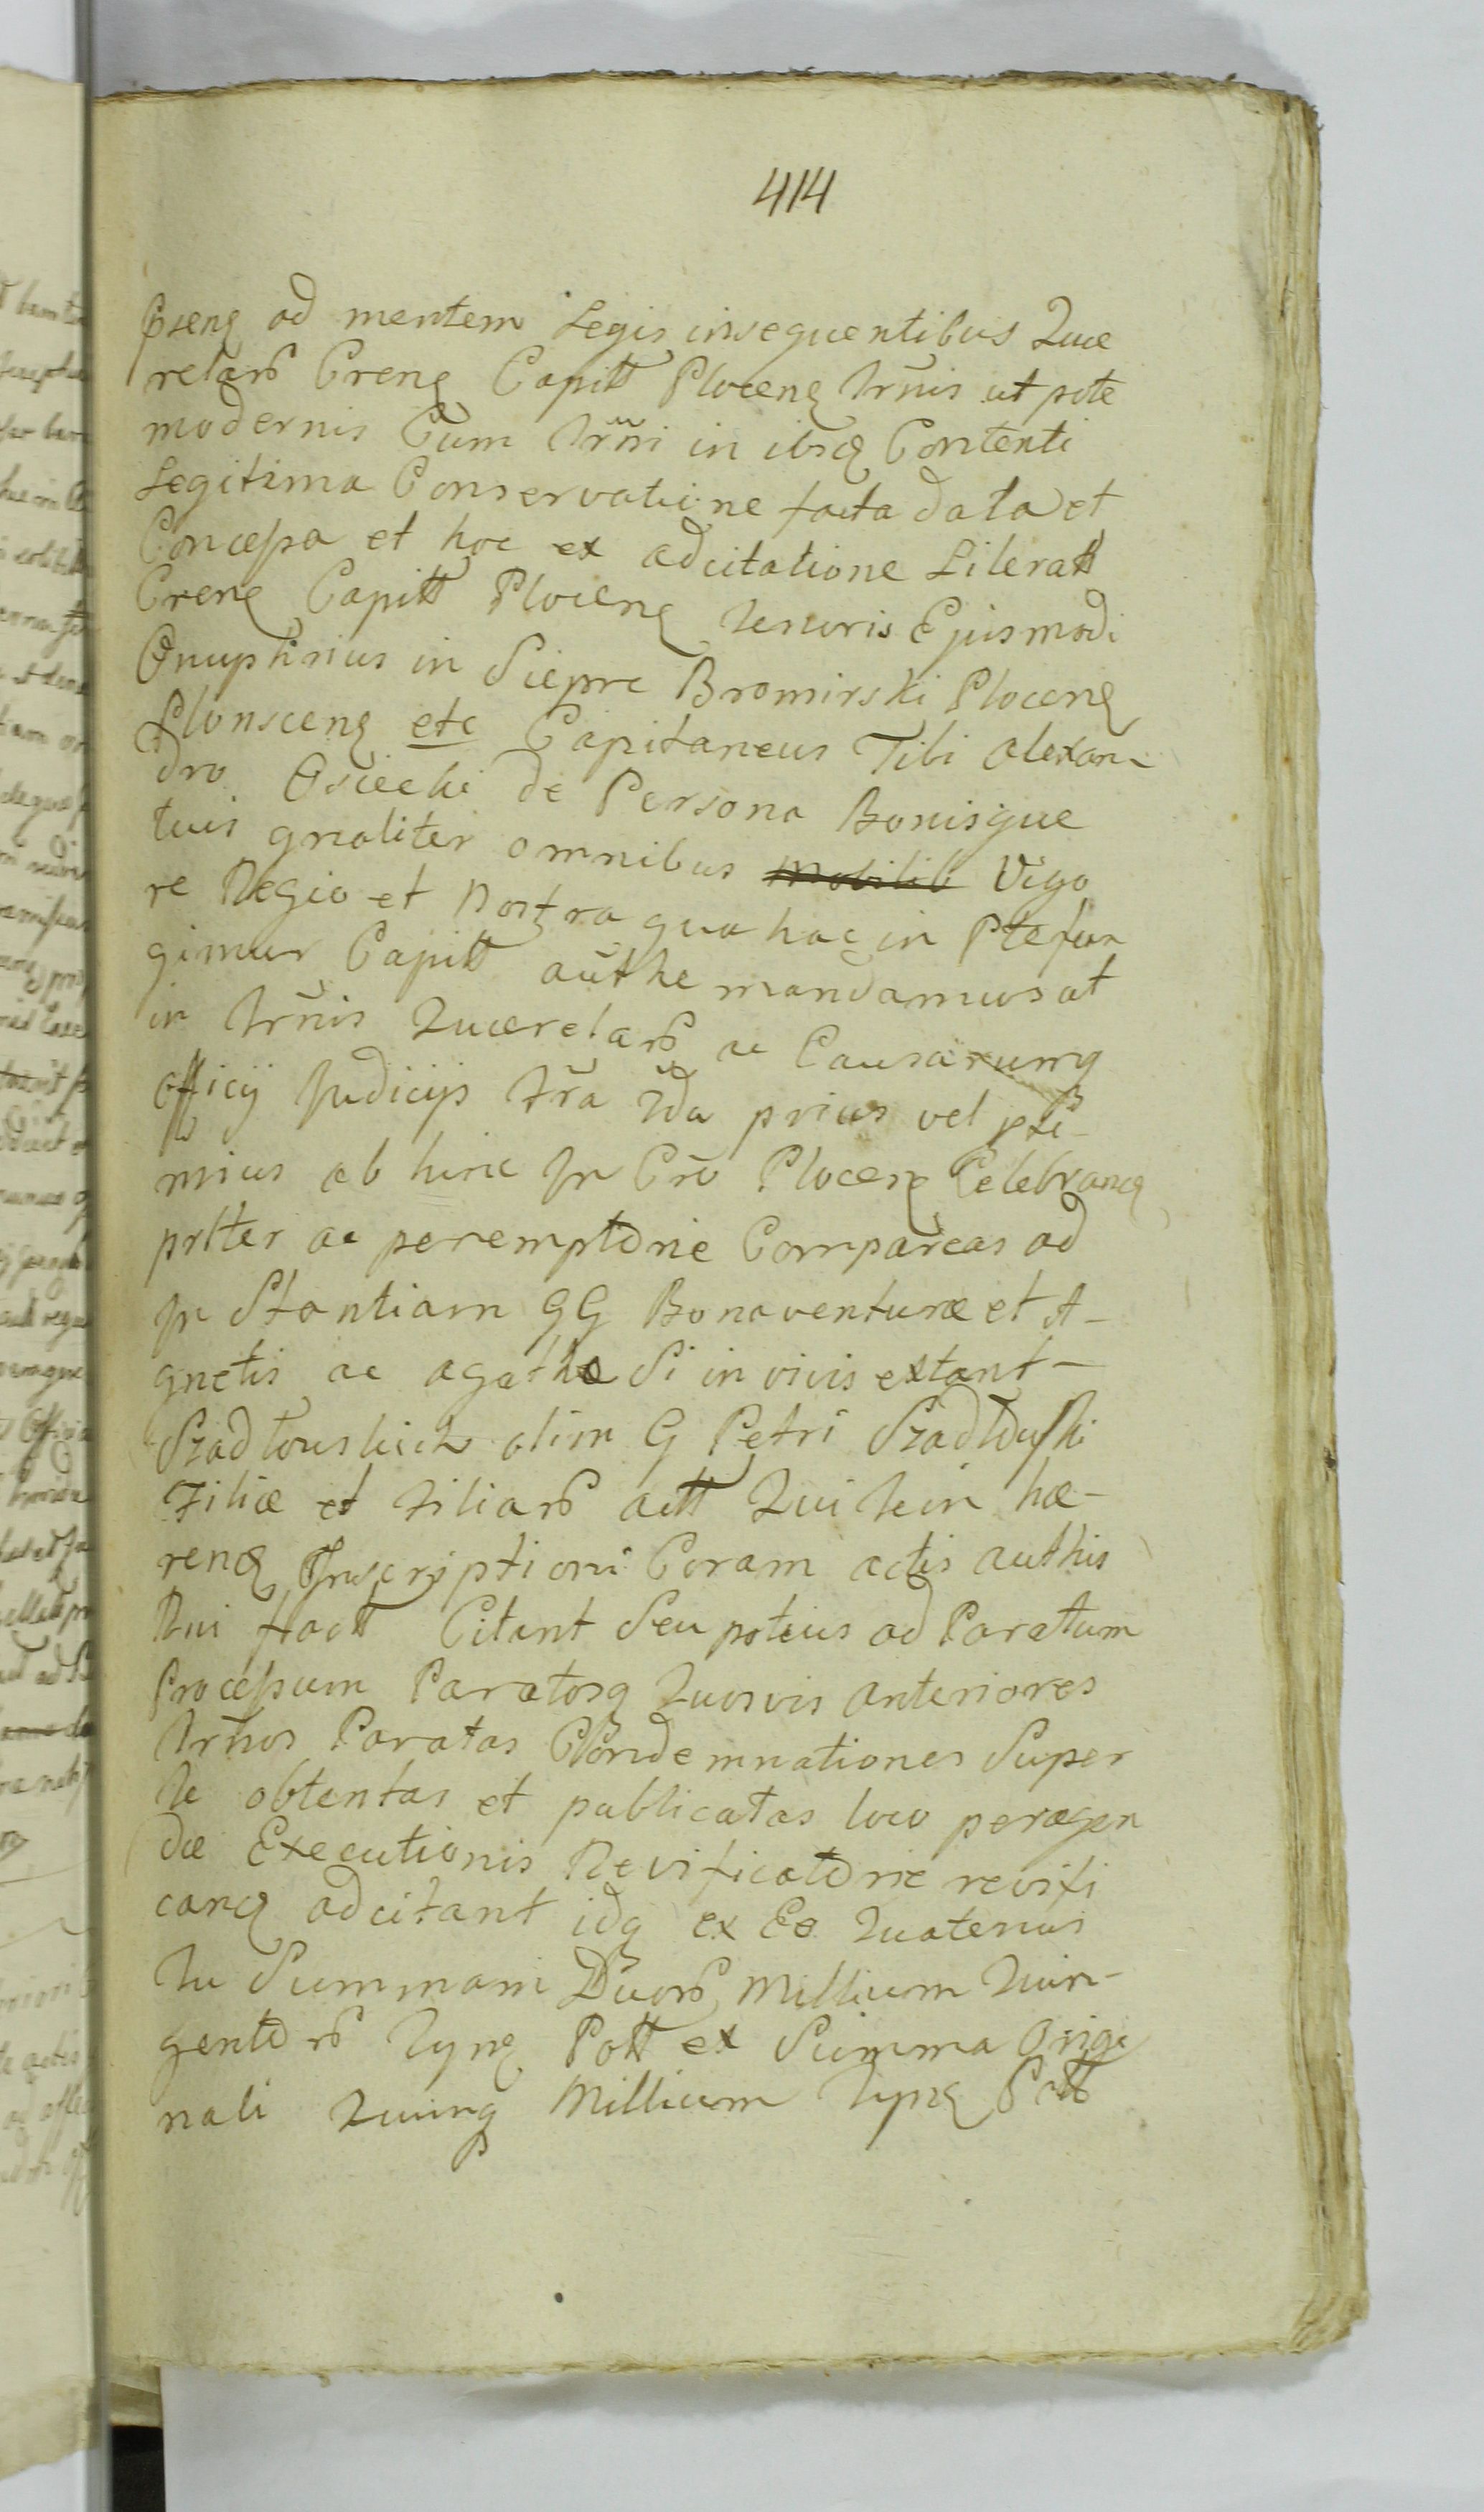 414
pseng ad mentem Legis insequentibus Quæ
relarũ Creng Capitt Ploceng Trñis ut pote
modernis Cum Trñi in ibsq Contenti
Legitima Conservatione facta data et
Concepsa et hoc ex adcitatione Literatt
Creng Capitt Ploceng Tenoris Ejusmodi
Onuphrius in Siepre Bromirski Ploceng
Plonsceng etc Capitaneus Tibi Alexan-
dro Osiecki de Persona Bonisque
tuis gnaliter omnibus Mobilib Vigo
re Regio et Nostra qua hac in Pte fun
gimur Capitt authe mandamus at
in Trñis Quærelarũ ac Causarumq
Officij Judicijs Fra 2da prius vel pti-
mius ab hinc In Crõ Ploceng Celebrang
prtter ac peremptorie Compareas ad
In Stantiam GG Bonaventuræ et A-
gnetis ac Agathæ Si in vivis extant-
Szadkowskich olim G Petri Szadkowski
Filiæ et Filiarũ actt Qui Tein hæ-
reng Inscriptioni Coram actis authis
Rni fractt Citant Seu potius ad Paratum
Procepsum Paratosq Quosvis Anteriores
Trñnos Paratas Condemnationes Super
Te obtentas et publicatas loco peragen
dæ Executionis Revificatorie revifi
cang adcitant idq ex Eo Quatenus
Tu Summam Duorũ Millium Quin-
gentorũ Flyng Pott ex Summa Origi
nali Quinq Millium Flyng Pott